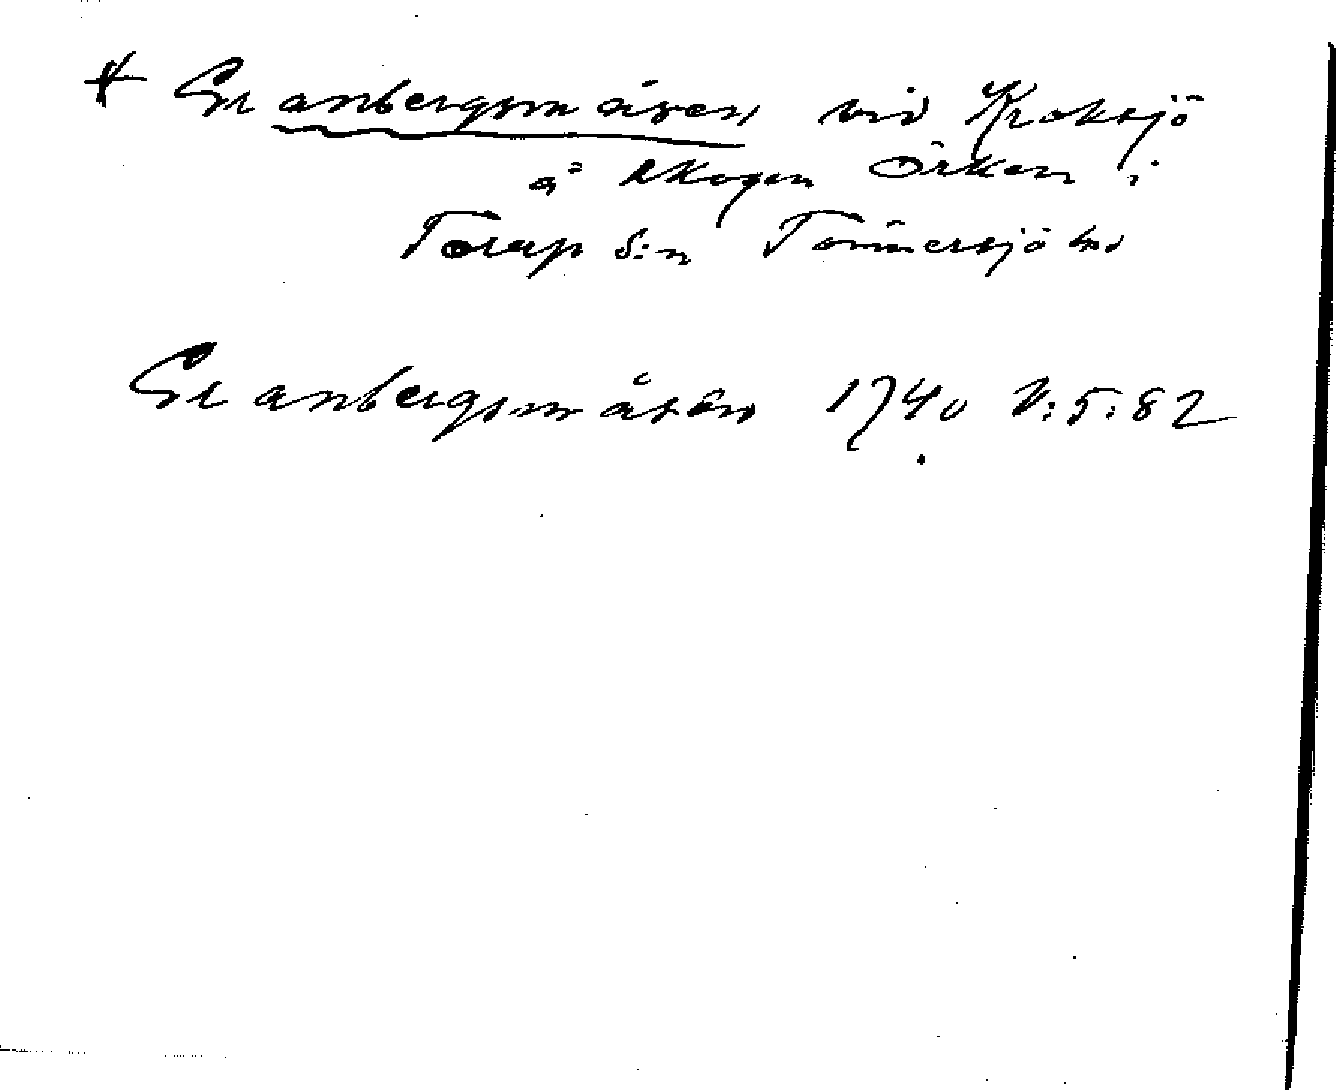 * Granbergsmåsen vid Kroksjö
å skogen Örken i
Torup s:n Tönnersjö hd
Granbergsmåsen 1740 V:5:82